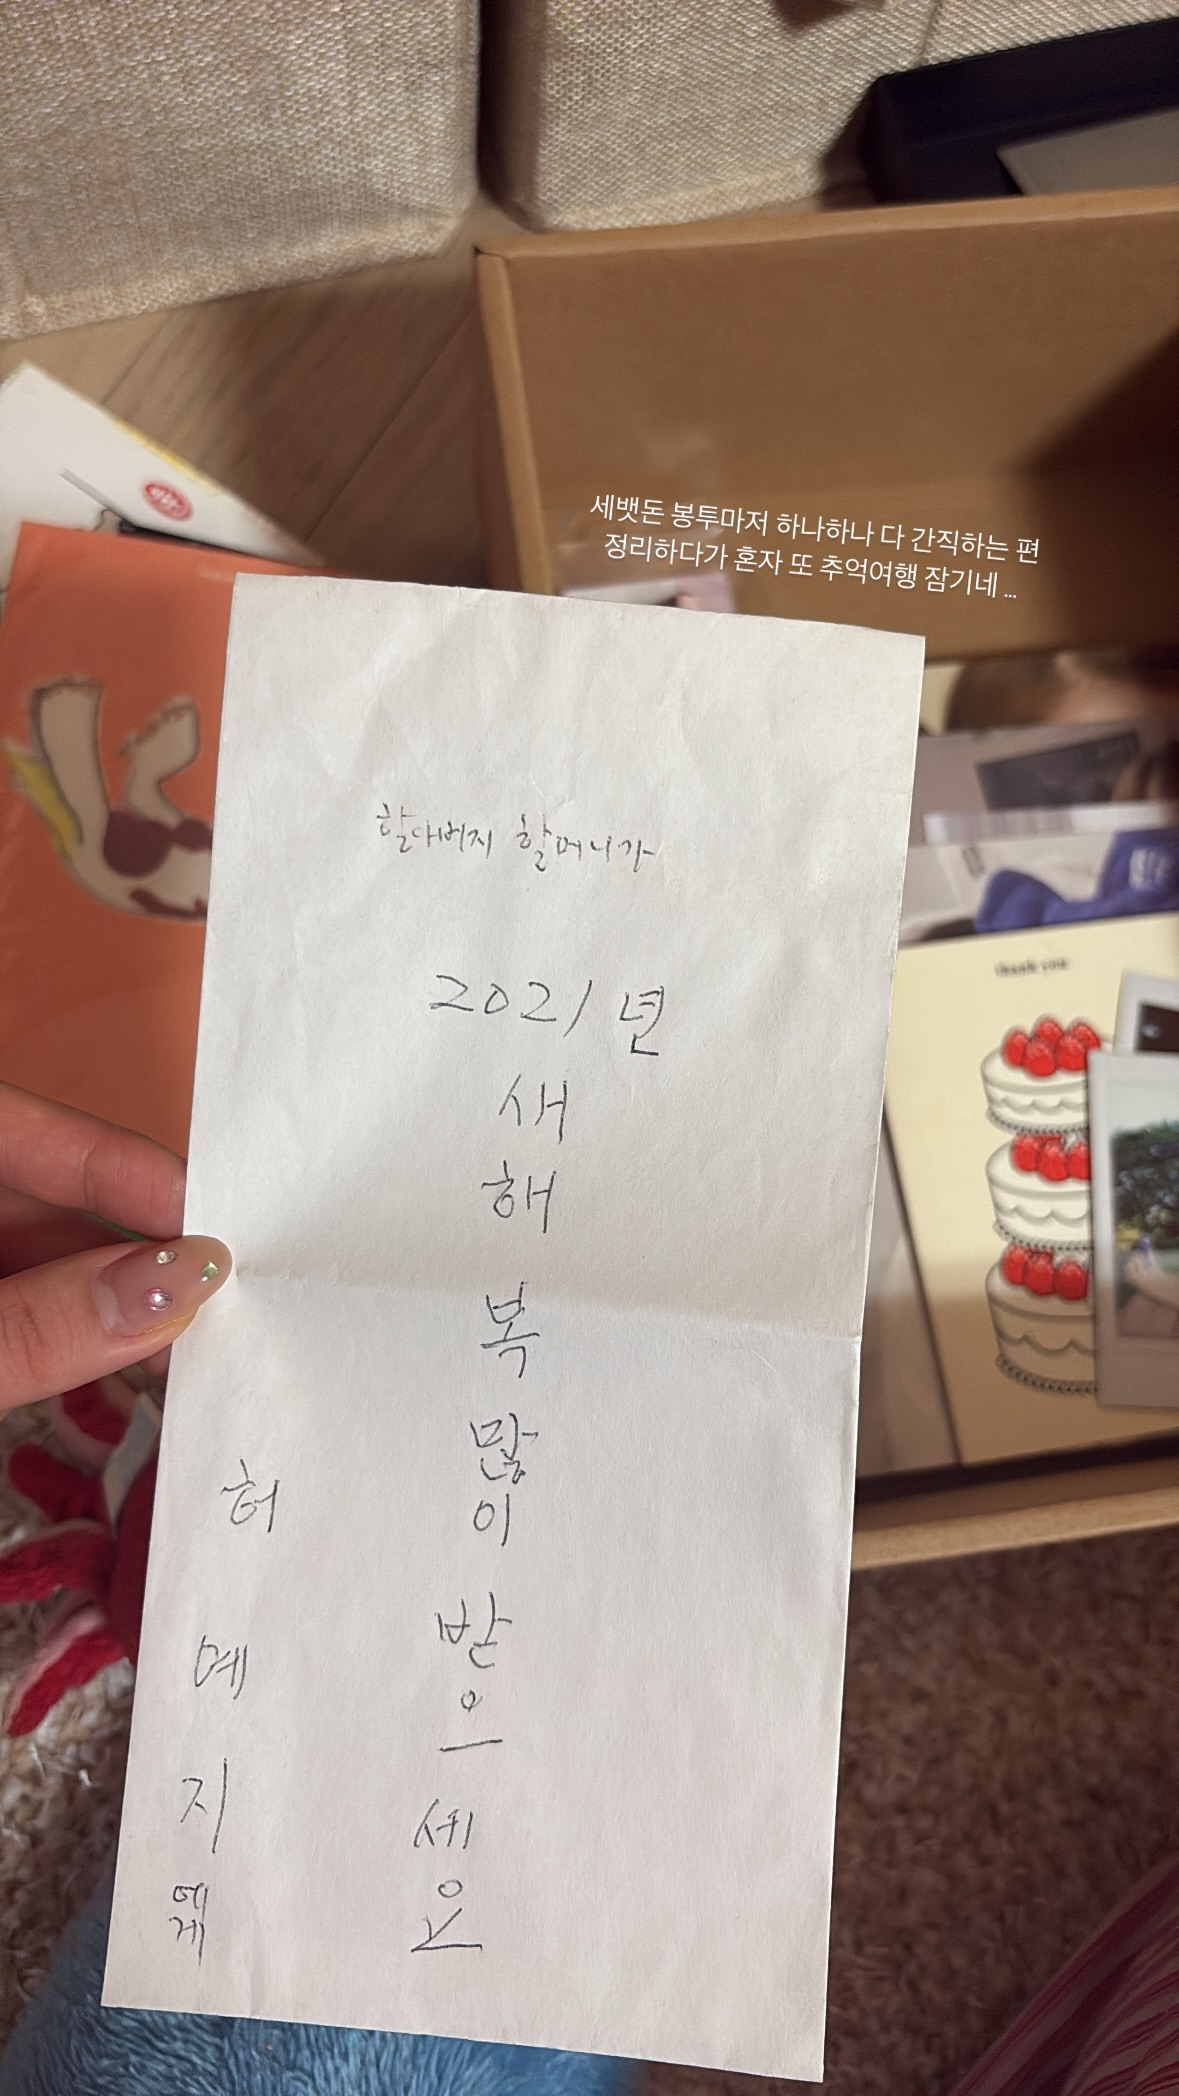 세뱃돈 봉투마저 하나하나 다 간직하는 편
정리하다가 혼자 또 추억여행 잠기네 ...
할아버지 할머니가
2021년
새해 복 많이 받으세요
허예지에게
thank you